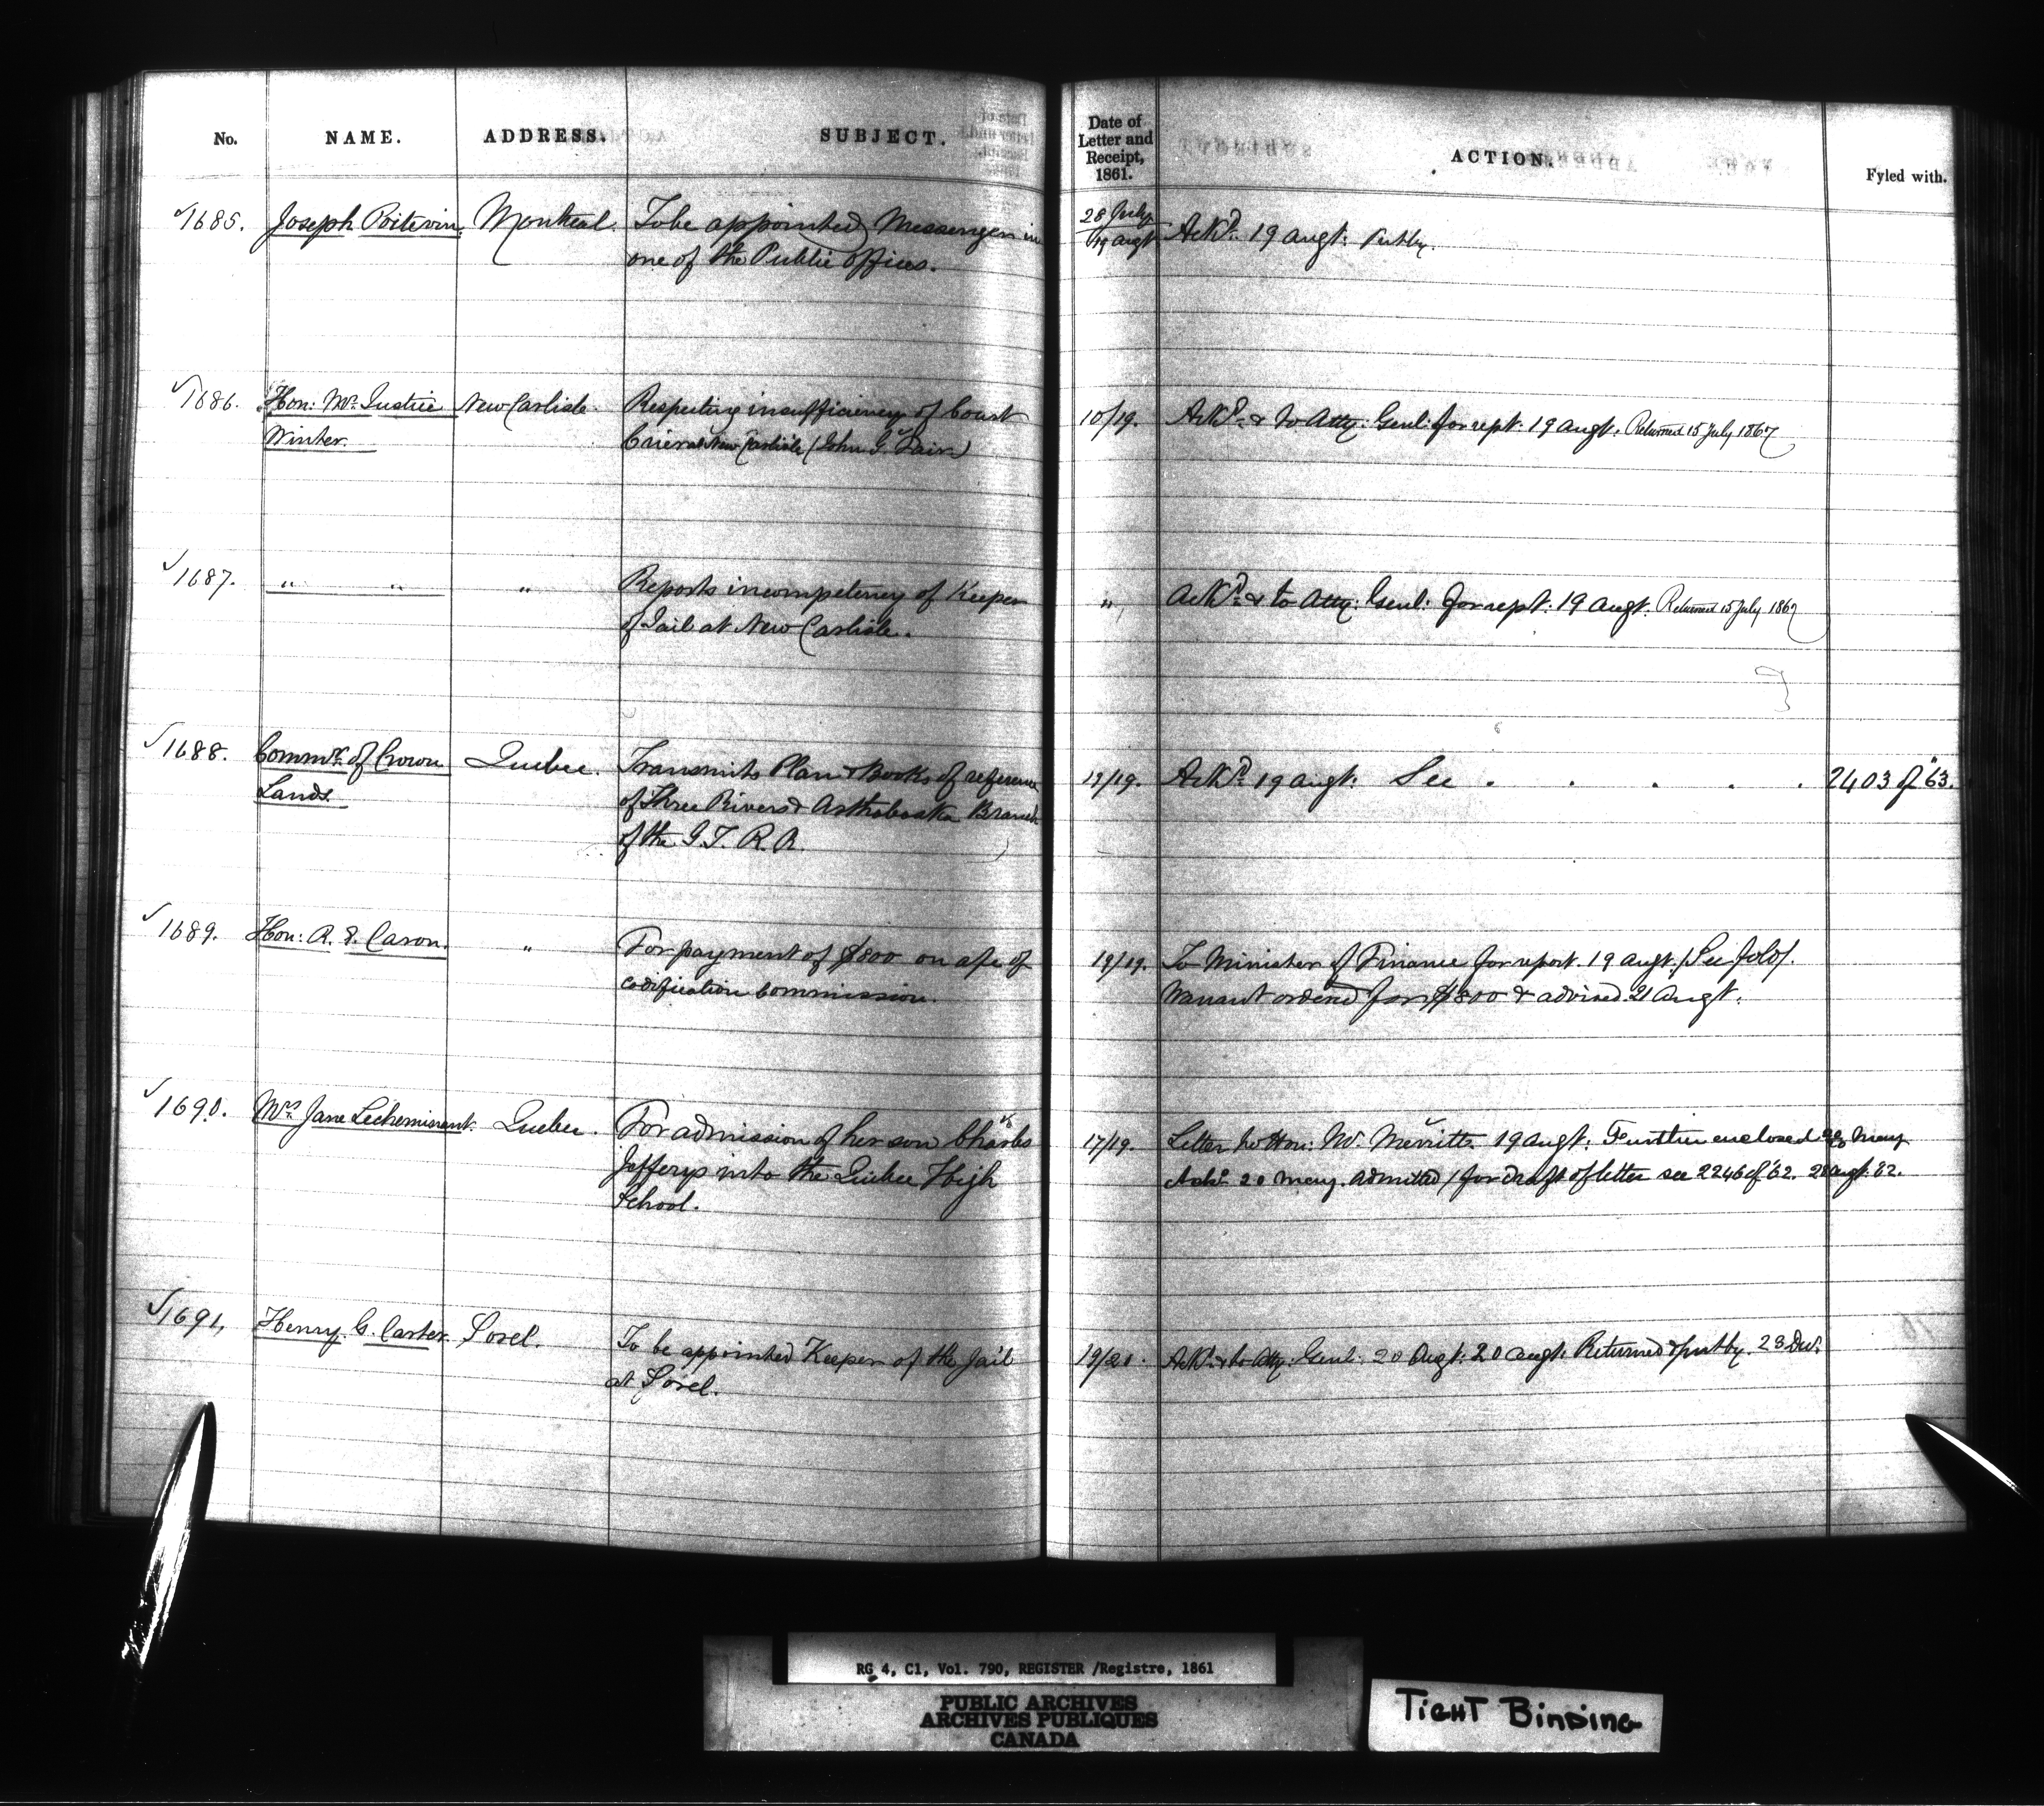 No. NAME. ADDRESS. SUBJECT. Date of Letter and Receipt, 1861. ACTION. Fyled with.
1685. Joseph Poitevin. Montreal. To be appointed Messenger in 28 July Ackd. 19 augt. Put by.
one of the Public offices. 19 augt
1686. Hon: Mr. Justice New Carlisle. Respecting insufficiency of Court 10/19. Ackd. & to Atty: Genl: for rept. 19 augt. Returned 15 July 1867
Winter. Crier at New Carlisle (John G. Fair)
1687. " " " Reports incompetency of Keeper " Ackd. & to Atty: Genl: for rept: 19 augt. Returned 15 July 1867
of Jail at New Carlisle.
1688. Commr. of Crown Quebec. Transmits Plan & Books of reference 19/19. Ackd. 19 augt: See . . . . . 2403 of '63.
Lands. of Three Rivers & Arthabaska Branch
of the G. T. R. R.
1689. Hon: R. E. Caron. " For payment of $800 on a/c of 19/19. To Minister of Finance for report. 19 augt. / See folo/.
codification commission. Warrant ordered for $800 & advised 21 Augt.
1690. Mrs. Jane Lecheminant. Quebec. For admission of her son Charles 17/19. Letter to Hon: Mr. Merritt. 19 augt: Further enclosed May
Jefferys into the Quebec High Ackd. 20 May. Admitted / for draft of letter see 2246 of '62. 28 augt. 62.
School.
1691. Henry G. Carter. Sorel. To be appointed Keeper of the Jail 19/20. Ackd. & to Atty: Genl: 20 Augt: 20 augt. Returned & put by. 28 Decr.
at Sorel.
RG 4, C1, Vol. 790, REGISTER /Registre, 1861
PUBLIC ARCHIVES
ARCHIVES PUBLIQUES
CANADA
TIGHT BINDING